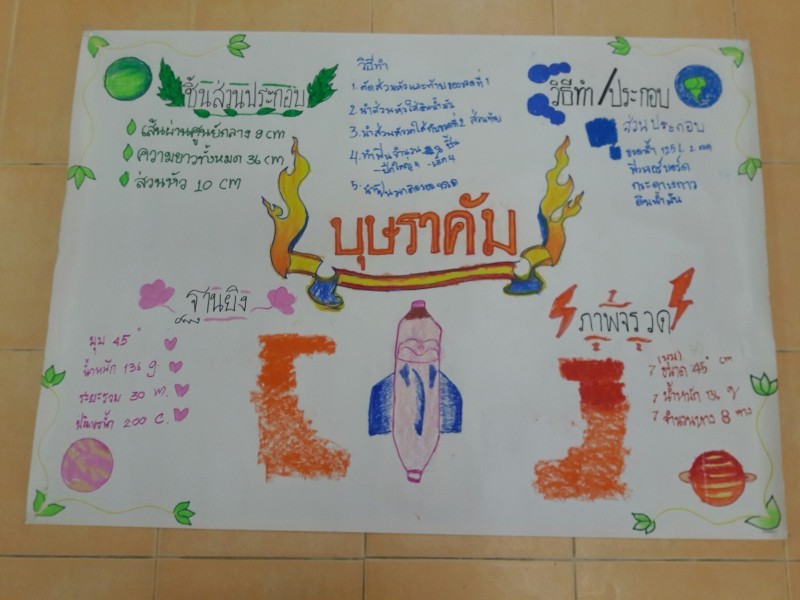 ชิ้นส่วนประกอบ
เส้นผ่านศูนย์กลาง 9 cm
ความยาวทั้งหมด 36 cm
ส่วนหัว 10 cm
วิธีทำ
1. ตัดส่วนหัวและท้ายของขวดที่ 1
2. นำส่วนหัวใส่ดินน้ำมัน
3. นำส่วนหัวใส่กับขวดที่ 2
4. ทำปีกจำนวน
5.
วิธีทำ/ประกอบ
ส่วนประกอบ
ขวดน้ำ 1.25 L 2 ขวด
ฟิวเจอร์บอร์ด
กระดาษกาว
ดินน้ำมัน
บุษราคัม
ฐานยิง
มุม 45°
น้ำหนัก 136 g
ระยะรวม 30 ม.
ปริมาณน้ำ 200 C.
ภาพจรวด
(มุม)
ขนาด 45° cm
น้ำหนัก 136 g
จำนวนหาง 8 หาง